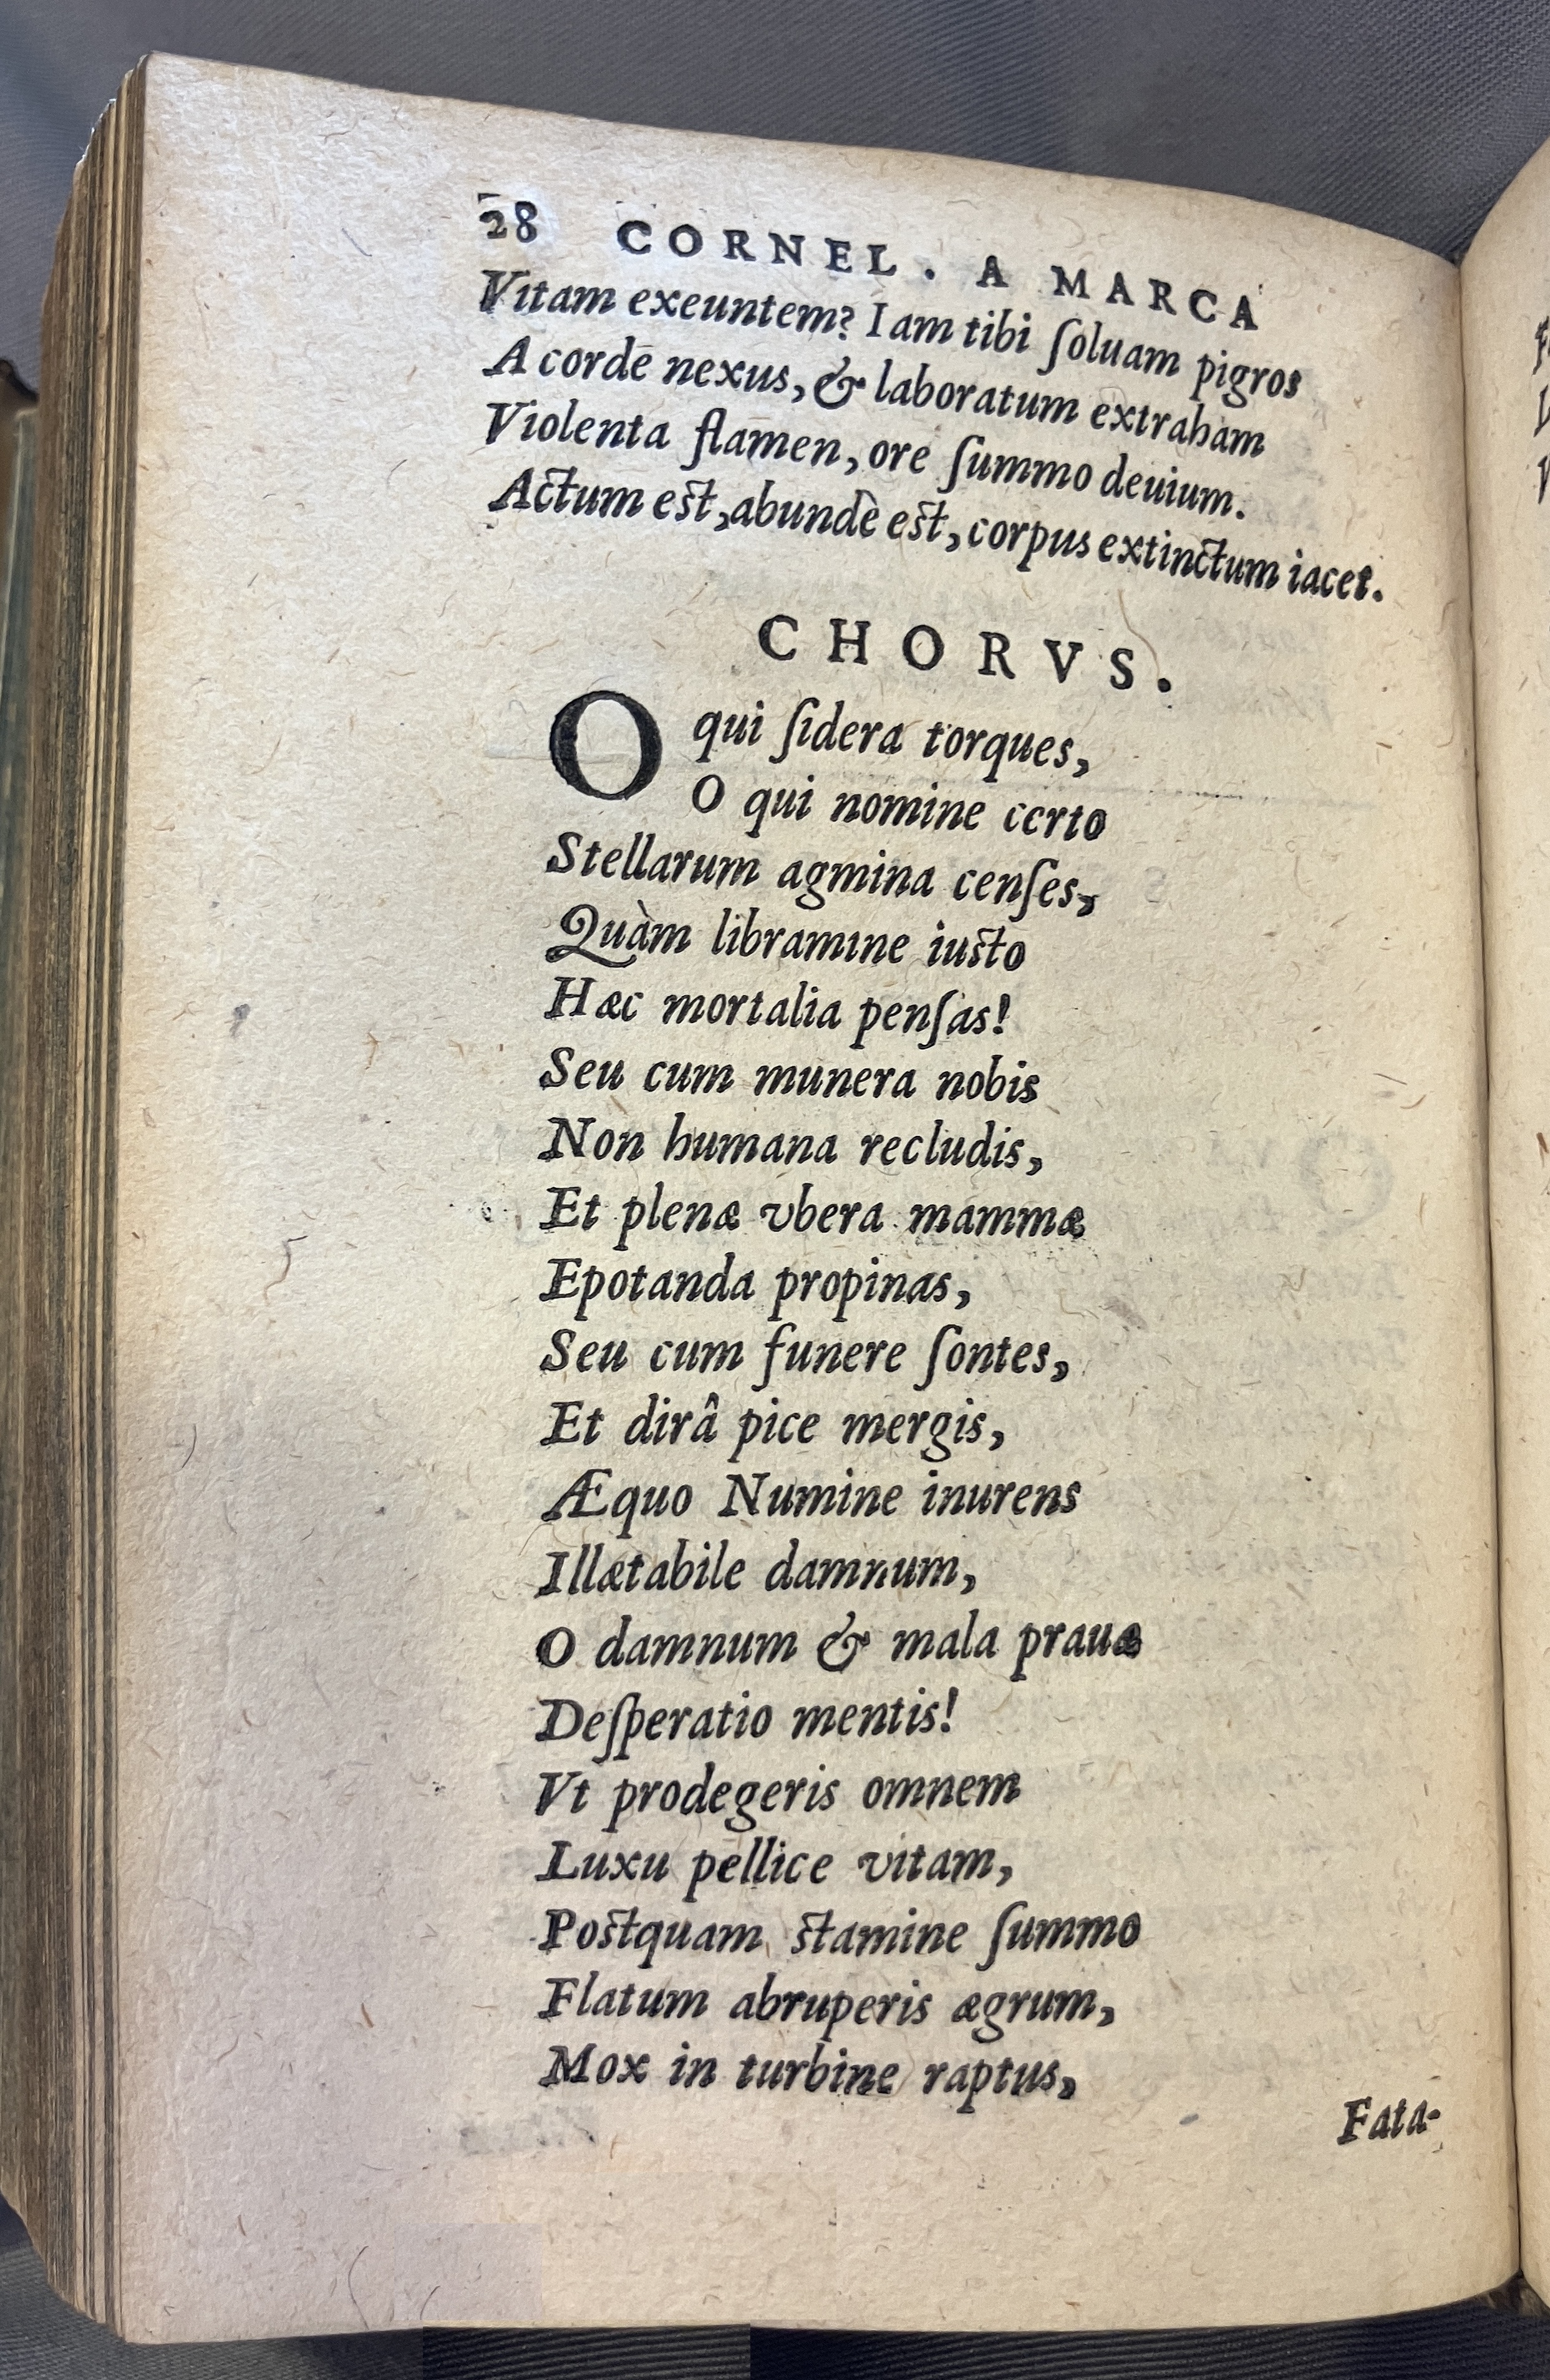 28 CORNEL. A MARCA
Vitam exeuntem? Iam tibi ſoluam pigros
A corde nexus, & laboratum extraham
Violenta flamen, ore ſummo deuium.
Actum eſt, abundè eſt, corpus extinctum iacet.
CHORVS.
O qui ſidera torques,
O qui nomine certo
Stellarum agmina cenſes,
Quàm libramine iuſto
Hæc mortalia penſas!
Seu cum munera nobis
Non humana recludis,
Et plenæ vbera mammæ
Epotanda propinas,
Seu cum funere ſontes,
Et dirâ pice mergis,
Æquo Numine inurens
Illætabile damnum,
O damnum & mala prauæ
Deſperatio mentis!
Vt prodegeris omnem
Luxu pellice vitam,
Poſtquam ſtamine ſummo
Flatum abruperis ægrum,
Mox in turbine raptus,
Fata-